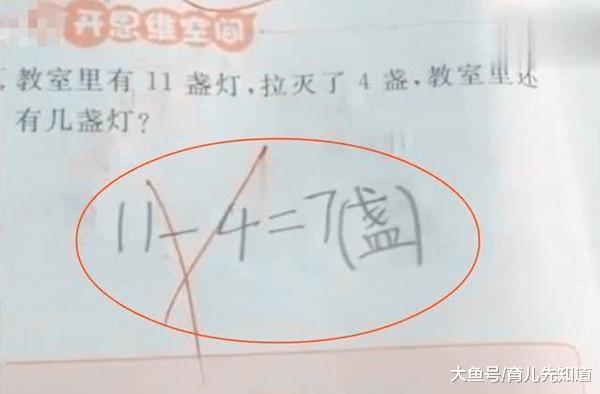 开思维空间
教室里有 11 盏灯,拉灭了 4 盏,教室里还
有几盏灯?
11-4=7(盏)
大鱼号/育儿先知道